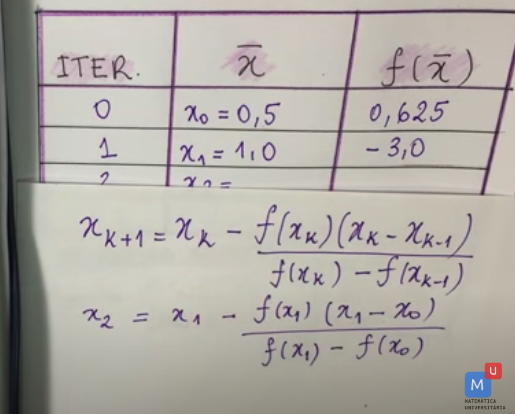 ITER. x̄ f(x̄)
0 x₀ = 0,5 0,625
1 x₁ = 1,0 - 3,0
2 x₂ =
xₖ₊₁ = xₖ - f(xₖ)(xₖ - xₖ₋₁)
f(xₖ) - f(xₖ₋₁)
x₂ = x₁ - f(x₁) (x₁ - x₀)
f(x₁) - f(x₀)
M U
MATEMÁTICA
UNIVERSITÁRIA